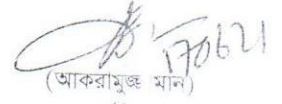 170621
(আকরামুজ্জ মান)